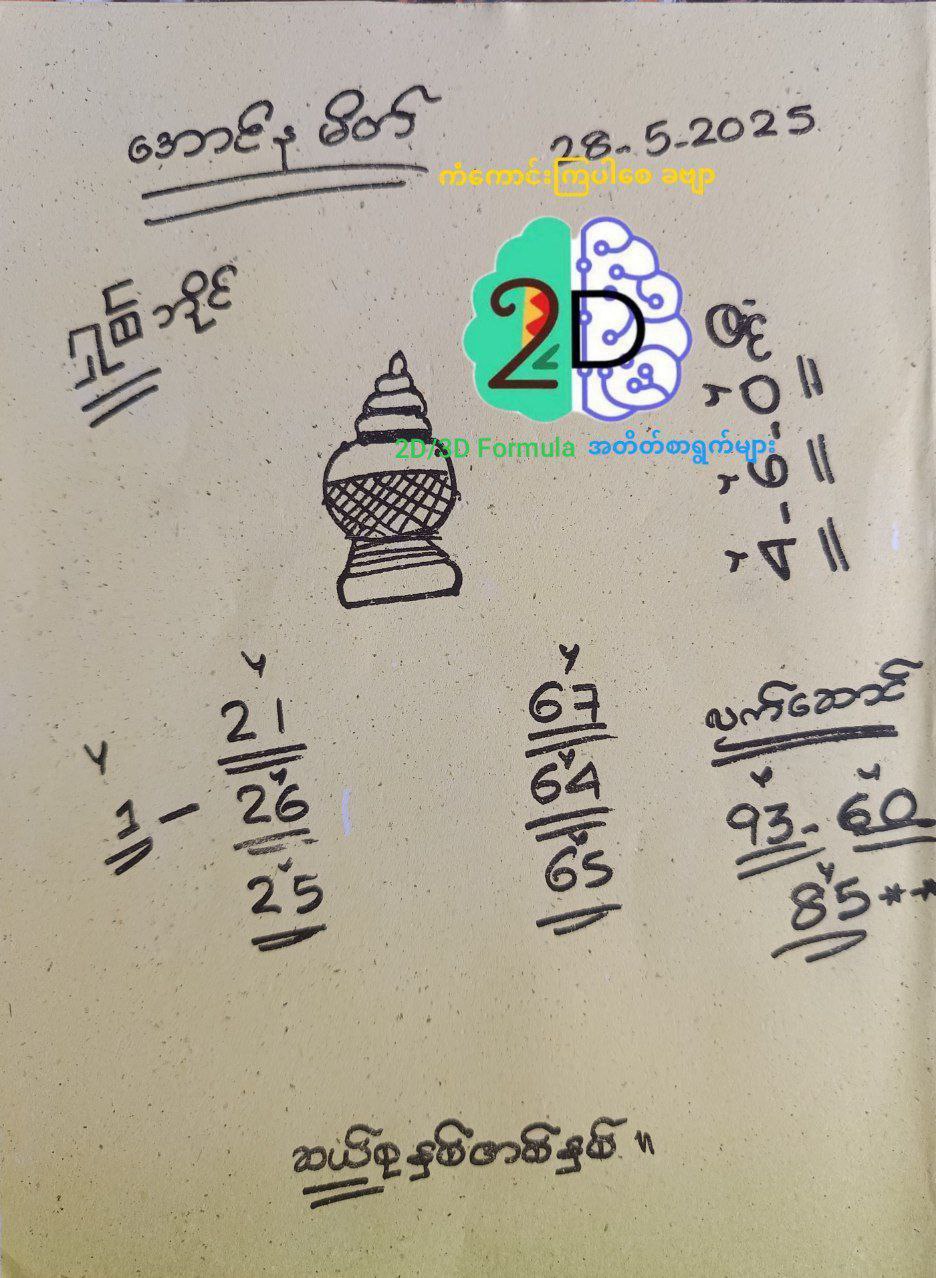 အောင်န မိတ်
28-5-2025
ကံကောင်းကြပါစေ ခဗျာ
2D
2D/3D Formula အတိတ်စာရွက်များ
21
1 - 26
25
67
64
65
လက်ဆောင်
93-60
85**
ဆယ်စုနှစ်ဇာစ်နှစ် ။